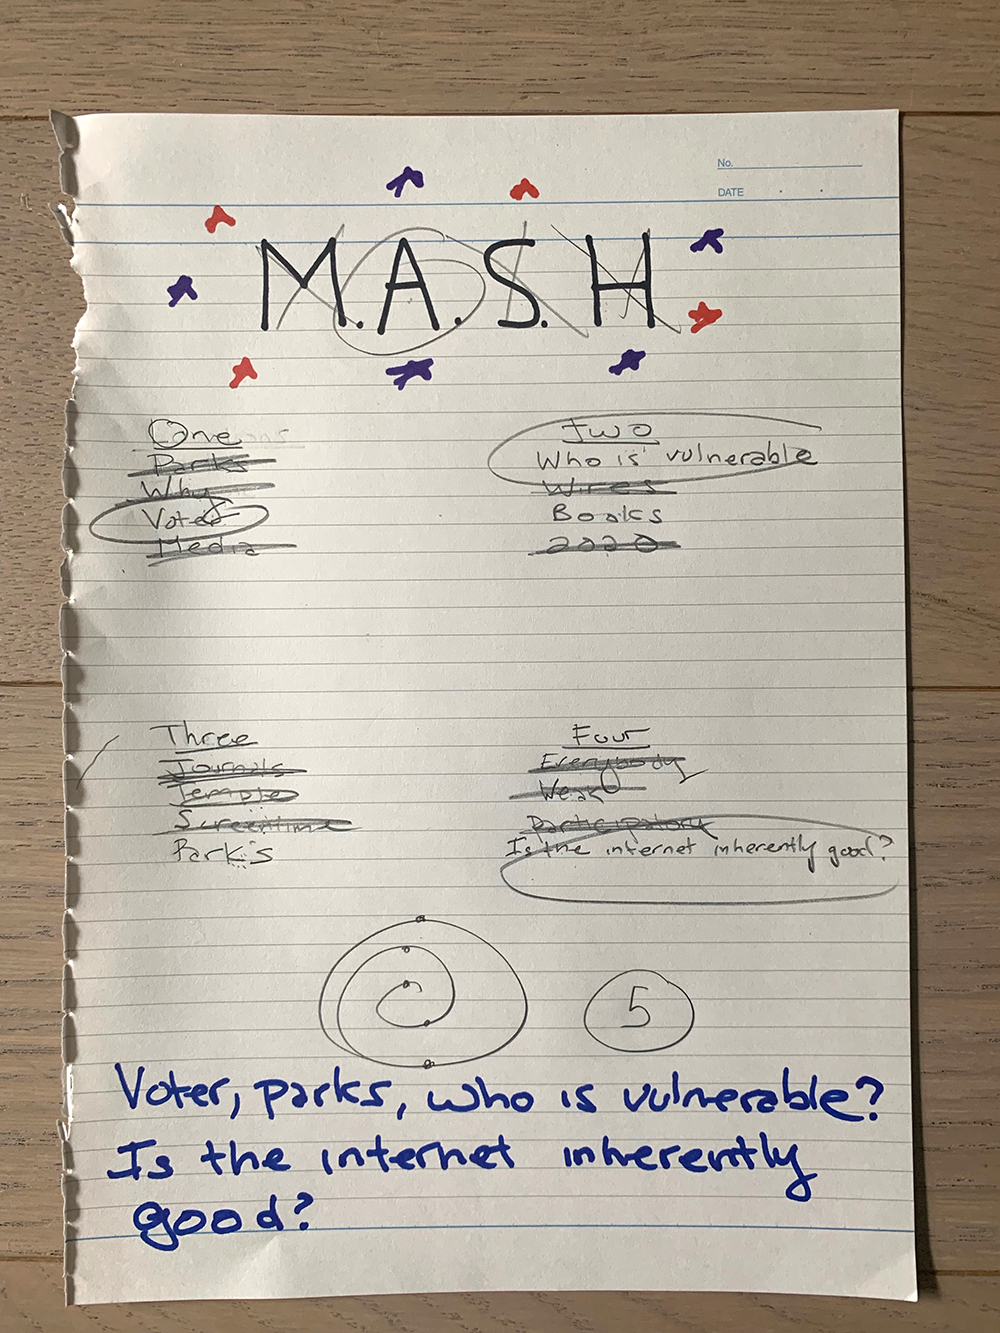 No.
DATE
M.A.S.H
One
Parks
Why
Voter
Media
Two
Who is vulnerable
Wires
Books
2020
Three
Journals
Temple
Screentime
Parks
Four
Everybody
Weak
Participatory
Is the internet inherently good?
5
Voter, parks, who is vulnerable?
Is the internet inherently
good?